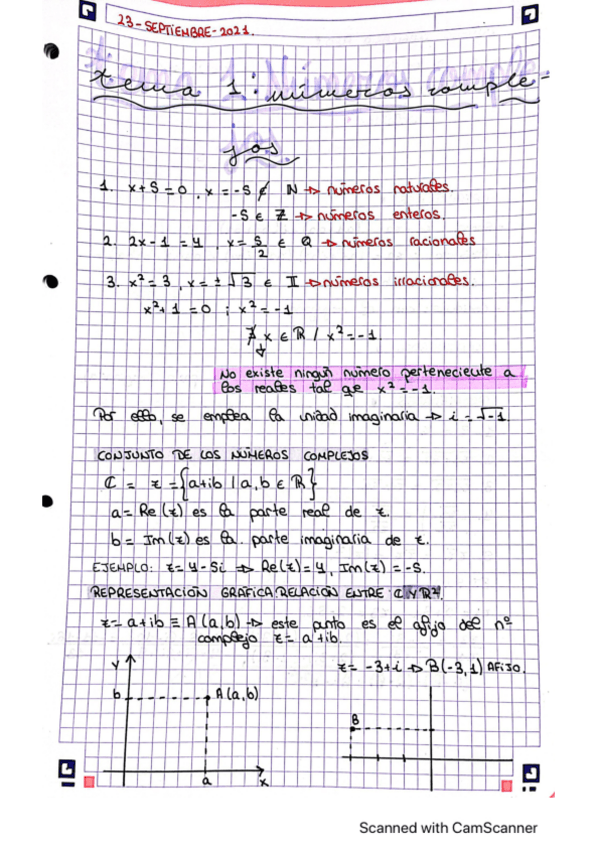 23-SEPTIEMBRE-2021.
tema 1: números comple-
jos.
1. x+5=0, x=-5 ∉ ℕ → números naturales.
-5 ∈ ℤ → números enteros.
2. 2x-1=4, x=5/2 ∈ Q → números racionales
3. x²=3, x=±√3 ∈ II → números irracionales.
x²+1=0 ; x²=-1
∄ x ∈ ℝ / x²=-1.
↓
No existe ningún número perteneciente a
los reales tal qe x²=-1.
Por ello, se emplea la unidad imaginaria → i=√-1.
CONJUNTO DE LOS NÚMEROS COMPLEJOS
ℂ = z = {a+ib / a,b ∈ ℝ}
a=Re(z) es la parte real de z.
b=Im(z) es la parte imaginaria de z.
EJEMPLO: z=4-5i ⇒ Re(z)=4, Im(z)=-5.
REPRESENTACIÓN GRÁFICA. RELACIÓN ENTRE ℂ Y ℝ².
z=a+ib ≡ A(a,b) → este punto es el afijo del nº
complejo z=a+ib.
z=-3+i → B(-3,1) AFIJO.
Y
b
A(a,b)
B
a
x
Scanned with CamScanner